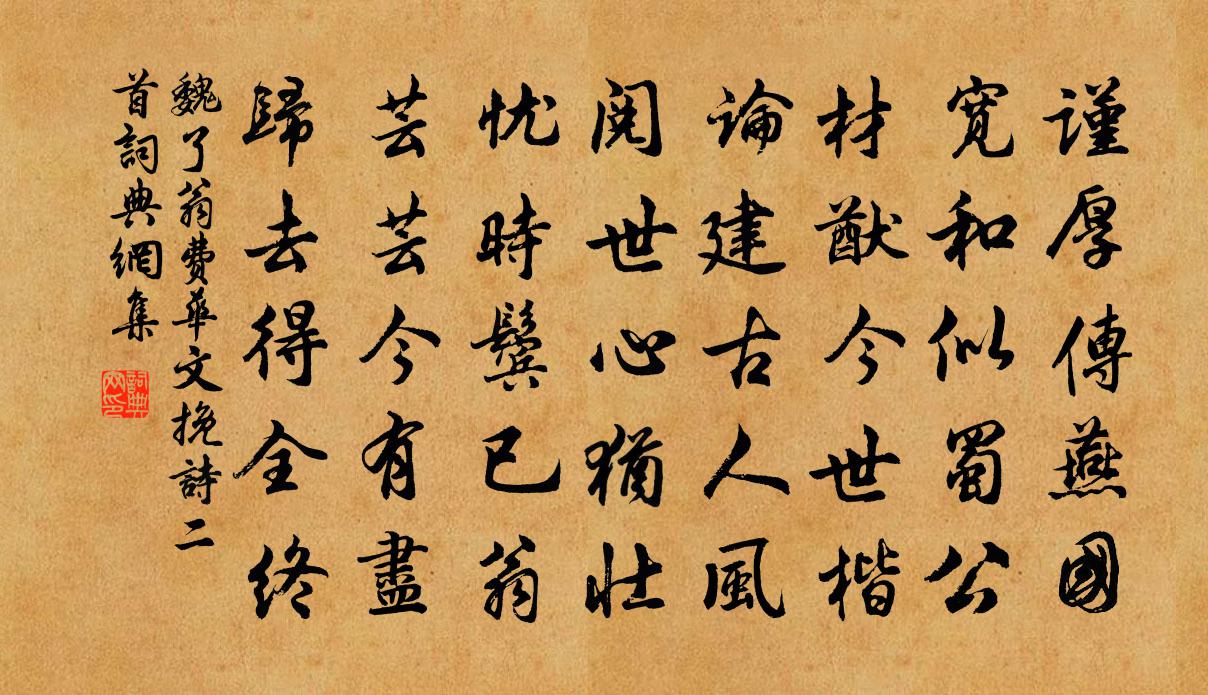 謹厚傳燕國
寬和似蜀公
材猷今世楷
論建古人風
閱世心猶壯
忧時鬓已翁
芸芸今有盡
歸去得全终
魏了翁費華文挽詩二
首詞典網集
詞典网印